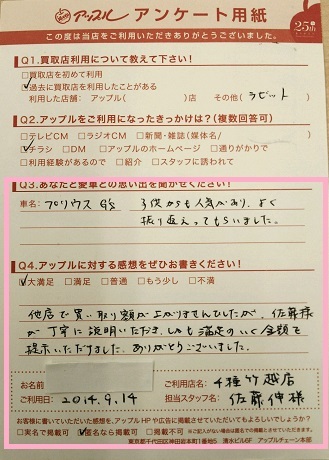 アップル アンケート用紙 25th
この度は当店をご利用いただきありがとうございました。
Q1.買取店利用について教えて下さい!
□買取店を初めて利用
☑過去に買取店を利用したことがある
利用した店舗: アップル( )店 その他( ラビット )
Q2.アップルをご利用になったきっかけは?(複数回答可)
□テレビCM □ラジオCM □新聞・雑誌(媒体名/ )
☑チラシ □DM □アップルのホームページ □通りがかりで
□利用経験があるので □紹介 □スタッフに誘われて
Q3.あなたと愛車との思い出を聞かせてください!
車名: プリウス G's 子供からも人気があり、よく
振り返えってもらいました。
Q4.アップルに対する感想をぜひお書きください!
☑大満足 □満足 □普通 □もう少し □不満
他店で買い取り額が上がりませんでしたが、佐藤様
が丁寧に説明いただき、しかも満足のいく金額を
提示いただけました。ありがとうございました。
お名前 ご利用店名 千種竹越店
ご利用日 2014.9.14 担当スタッフ名 佐藤伸様
お客様に書いていただいた感想を、アップルHPや広告に掲載させていただいてもよろしいでしょうか?
□実名で掲載可 ☑匿名なら掲載可 □掲載不可 ※ご記入がない場合は匿名での掲載とさせていただきます。
東京都千代田区神田岩本町1番地5 清水ビル6F アップルチェーン本部